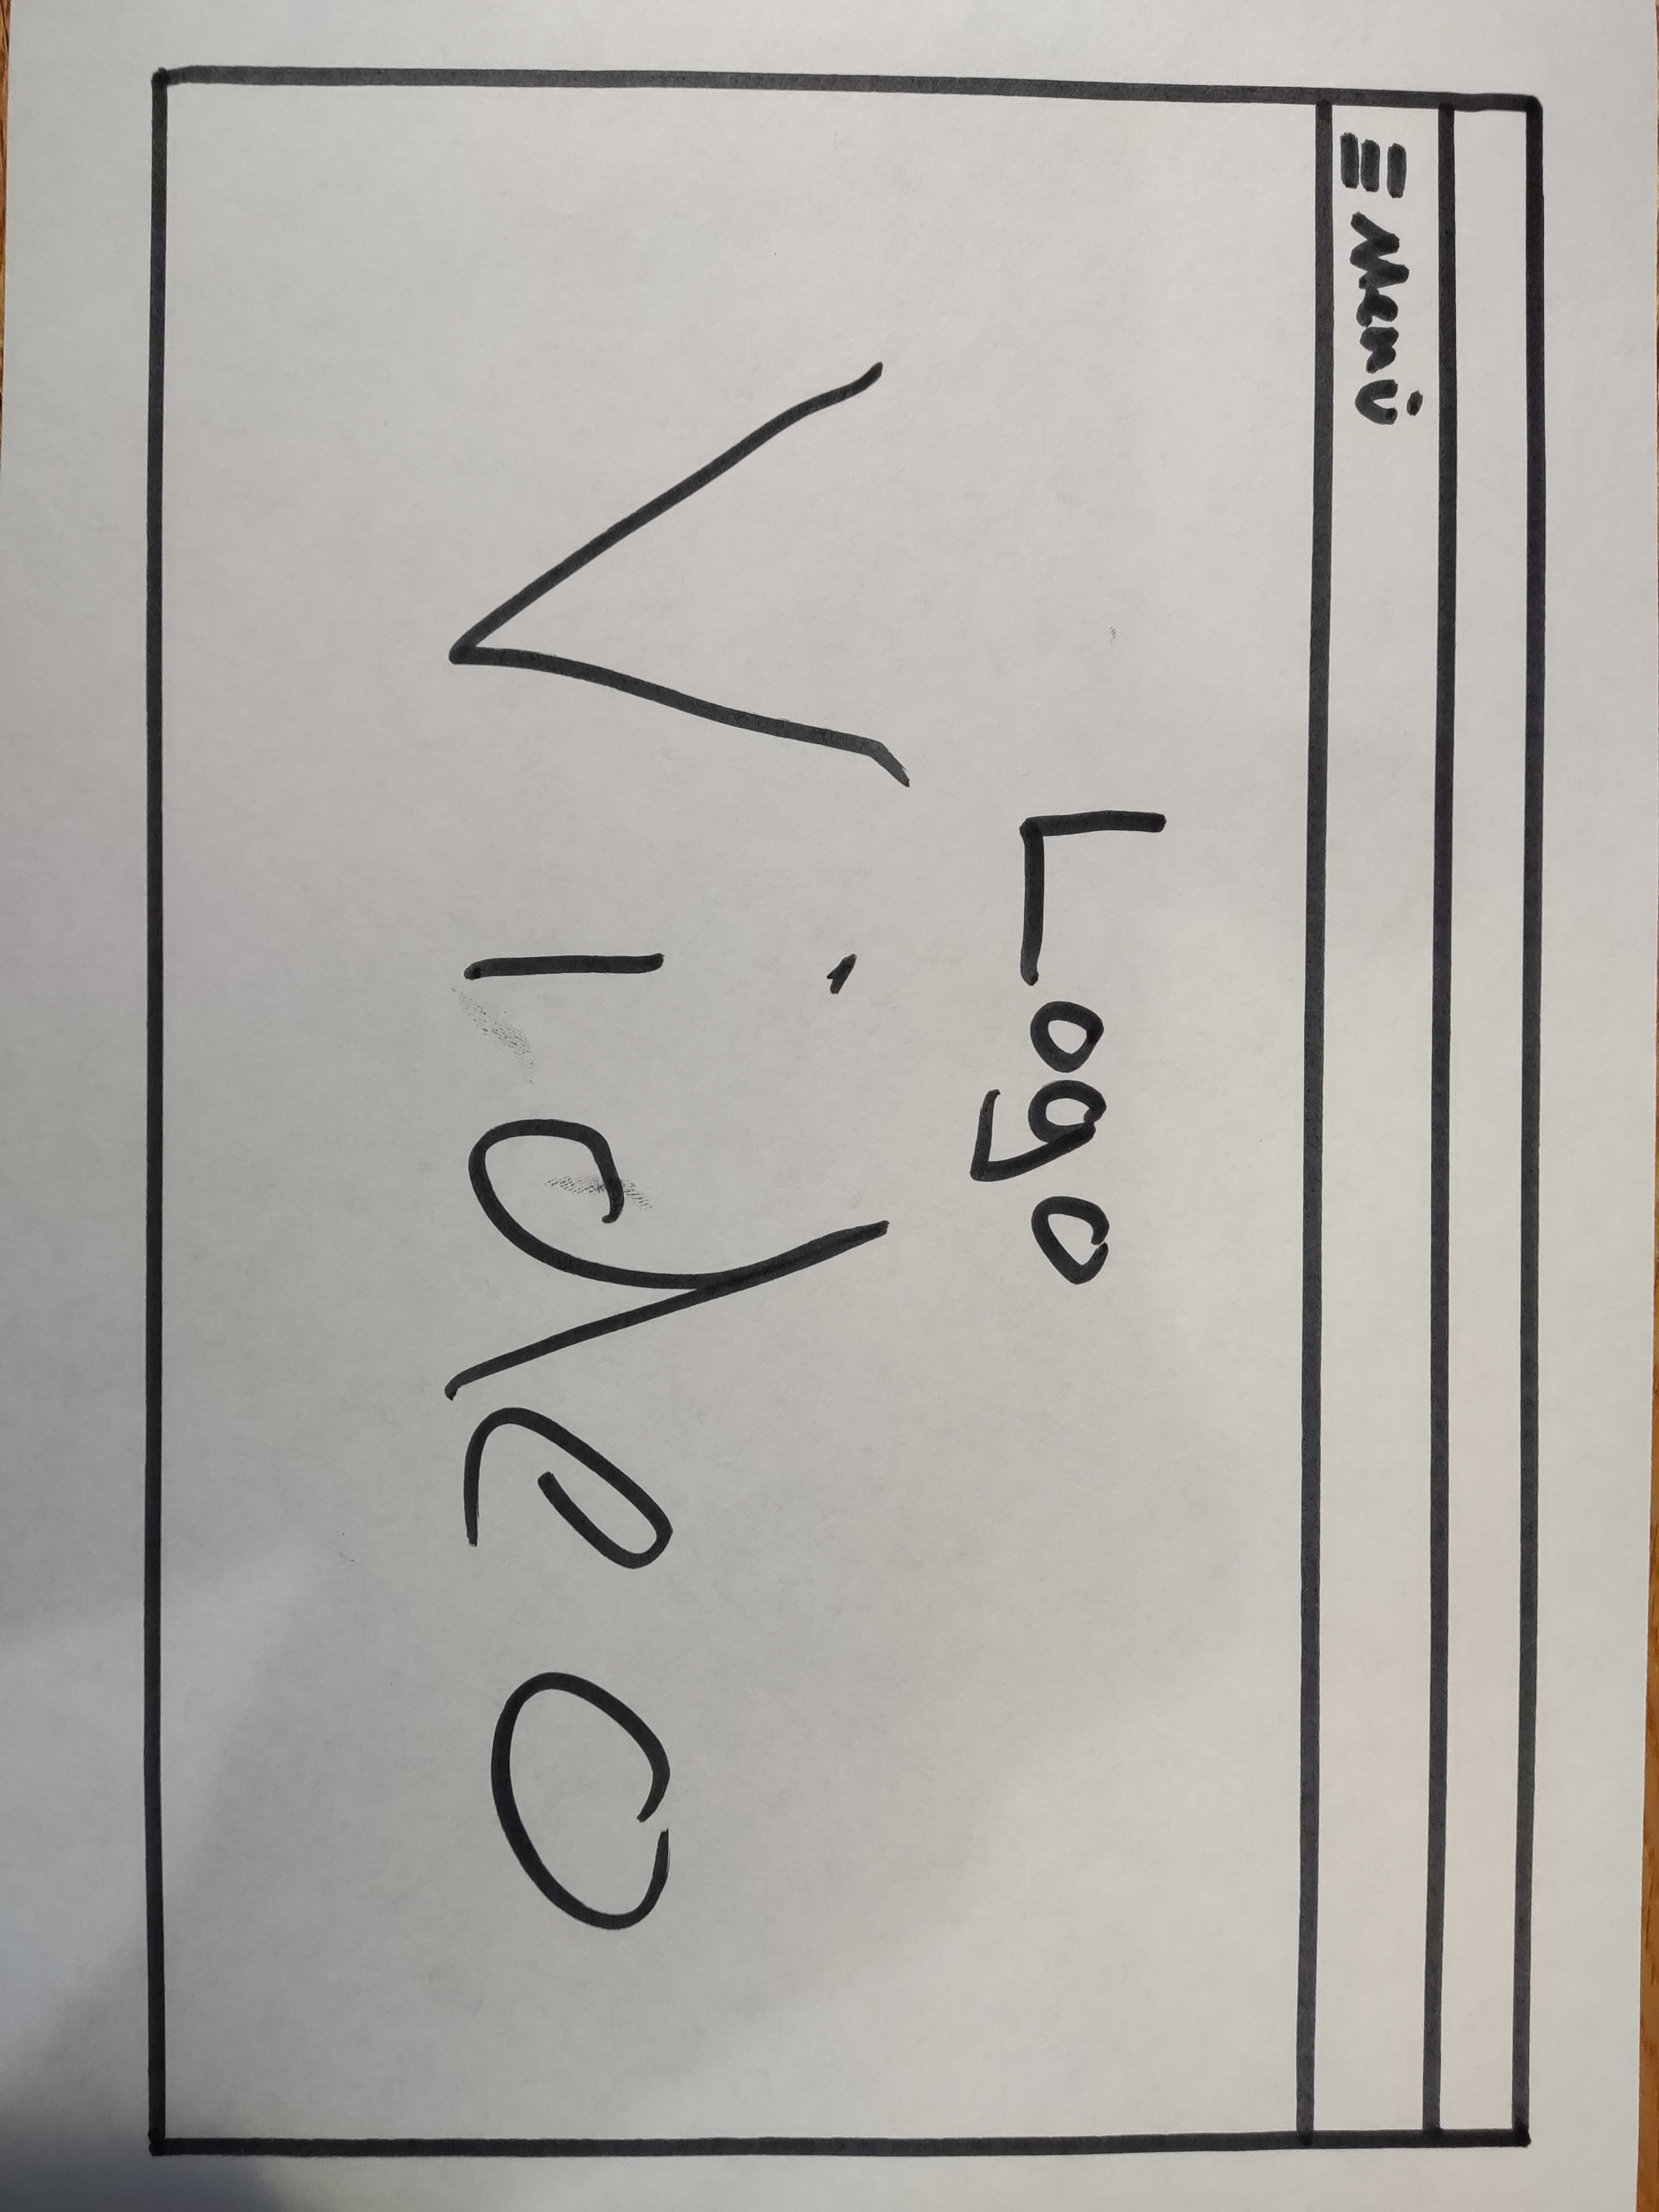 Menü
Logo
Video